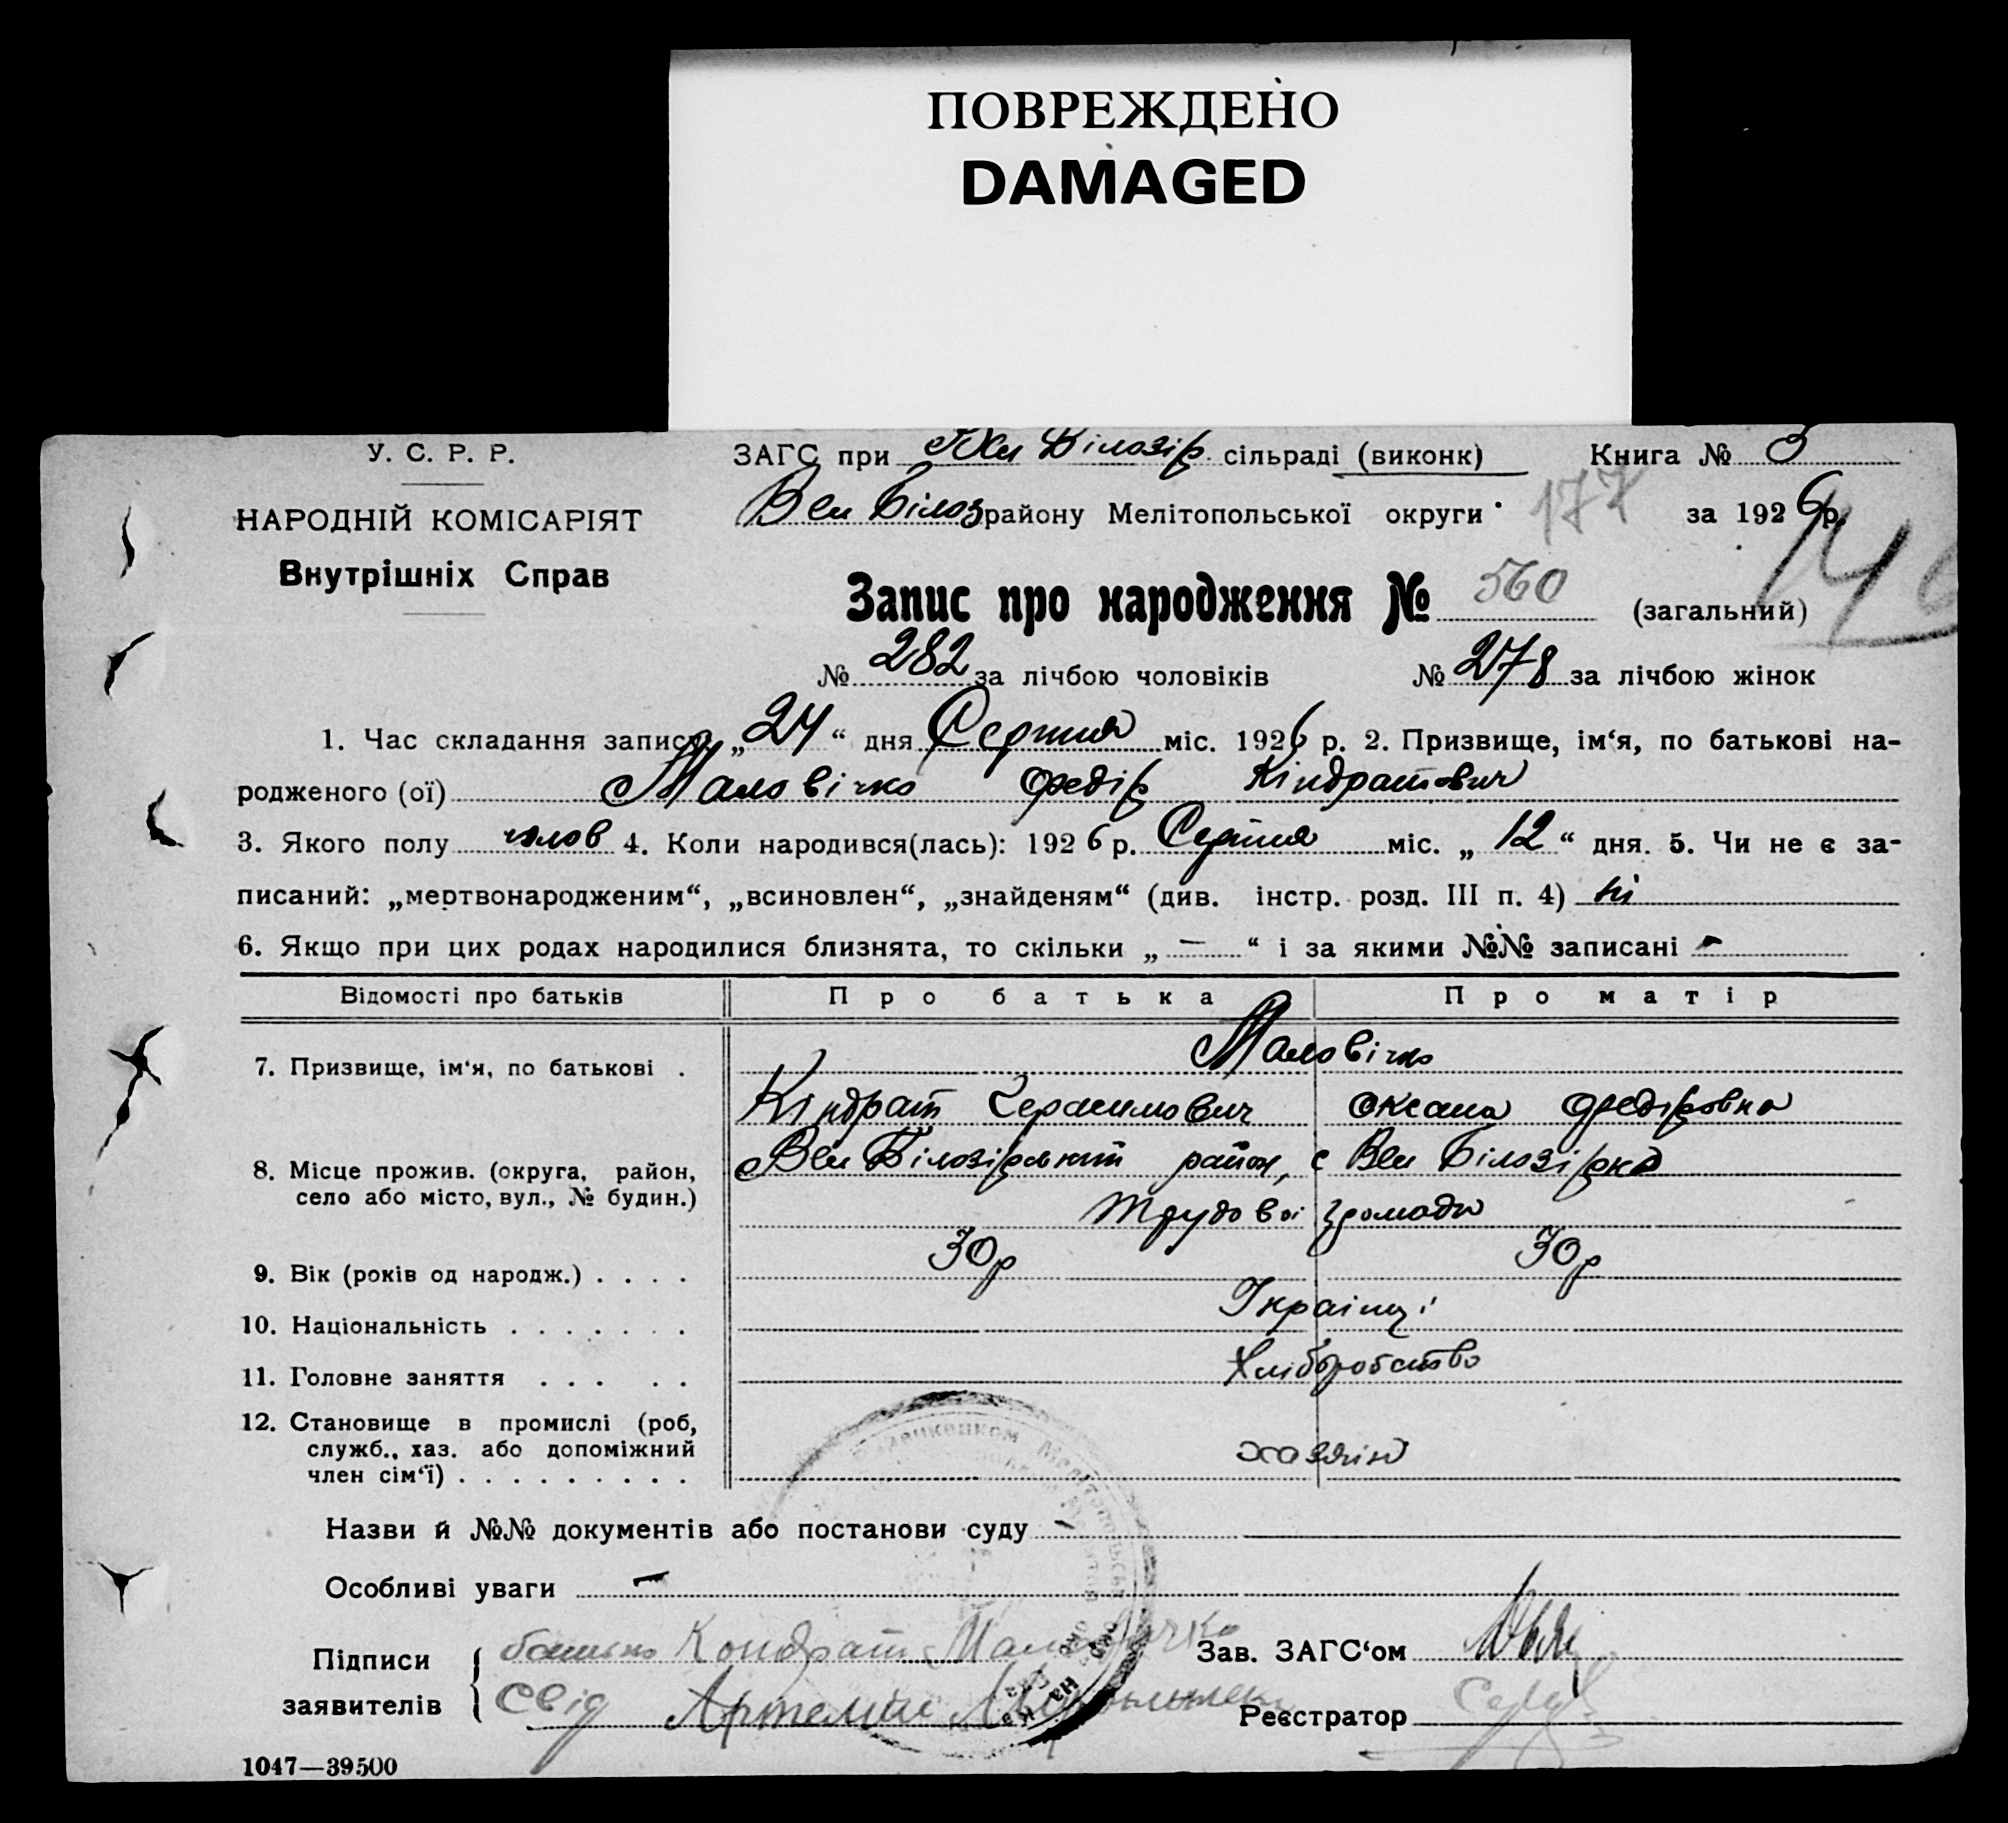 ПОВРЕЖДЕНО
DAMAGED
У. С. Р. Р.
НАРОДНІЙ КОМІСАРІЯТ
Внутрішніх Справ
ЗАГС при Вел Білозір сільраді (виконк) Книга №
Вел Білоз району Мелітопольської округи 177 за 1926 р.
Запис про народження № 560 (загальний)
№ 282 за лічбою чоловіків № 278 за лічбою жінок
1. Час складання запису „24“ дня Серпня міс. 1926 р. 2. Призвище, ім‘я, по батькові на-
родженого (ої) Маловічко Федір Кіндратович
3. Якого полу чолов 4. Коли народився(лась): 1926 р. Серпня міс. „12“ дня. 5. Чи не є за-
писаний: „мертвонародженим“, „всиновлен“, „знайденям“ (див. інстр. розд. III п. 4) ні
6. Якщо при цих родах народилися близнята, то скільки „—“ і за якими №№ записані -
Відомості про батьків Про батька Про матір
7. Призвище, ім‘я, по батькові . Маловічко
Кіндрат Герасимович Оксана Федіровна
8. Місце прожив. (округа, район, Вел Білозірський район, с Вел Білозірка
село або місто, вул., № будин.)
Трудової громади
9. Вік (років од народж.) . . . . 30р 30р
10. Національність . . . . . . . Українці
11. Головне заняття . . . . . Хліборобство
12. Становище в промислі (роб,
служб., хаз. або допоміжний
член сім‘ї) . . . . . . . . . хазяін
Назви й №№ документів або постанови суду -
Особливі уваги -
Підписи батько Кондрат Маловичко Зав. ЗАГС‘ом
заявителів Свід Артемій Реєстратор
1047—39500